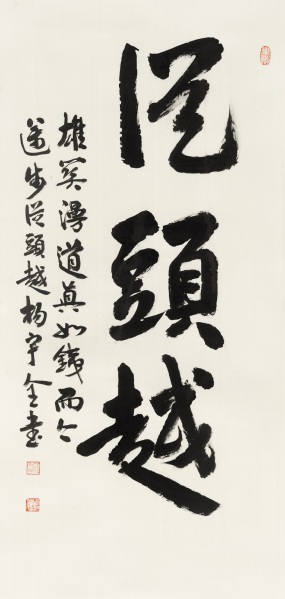 從頭越
雄關漫道真如鐵而今
邁步從頭越楊宇全書